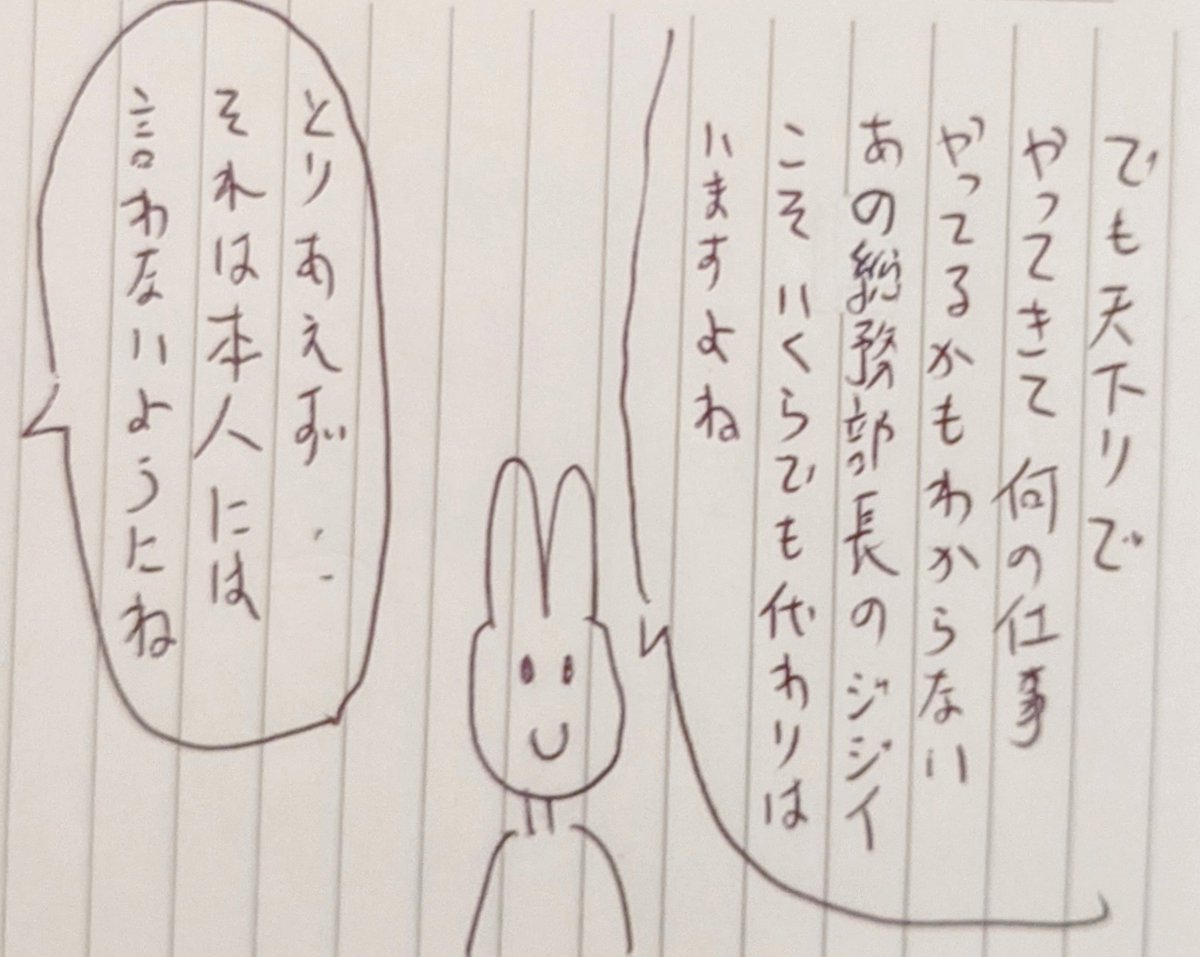 でも天下りで
やってきて 何の仕事
やってるかもわからない
あの総務部長のジジイ
こそ いくらでも代わりは
いますよね
とりあえず…
それは本人には
言わないようにね